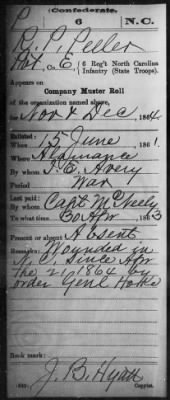 Confederate.
P 6 N.C.
R. P. Peeler
Pvt., Co. E, 6 Reg't North Carolina
Infantry (State Troops).
Appears on
Company Muster Roll
of the organization named above,
for Nov & Dec, 1864.
Enlisted:
When 15 June, 1861.
Where Alamance
By whom I. E. Avery
Period War
Last paid:
By whom Capt McNeely
To what time 30 Apr, 1863
Present or absent Absent
Remarks: Wounded in
N.C. Since Apr
the 21, 1864 by
order Genl Hoke
Book mark:
J. B. Hyatt
Copyist.